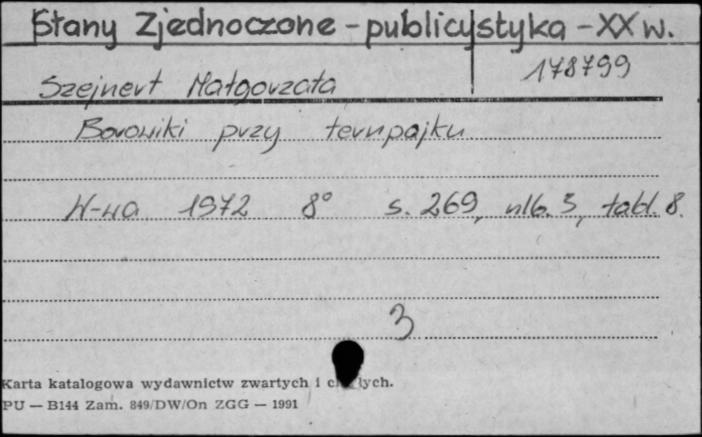 Stany Zjednoczone - publicystyka - XX w.
178799
Szejnert Małgorzata
Borowiki przy ternpajku
W-wa 1972 8° s. 269, nlb. 3, tabl. 8.
3
Karta katalogowa wydawnictw zwartych i
PU — B144 Zam. 849/DW/On ZGG — 1991